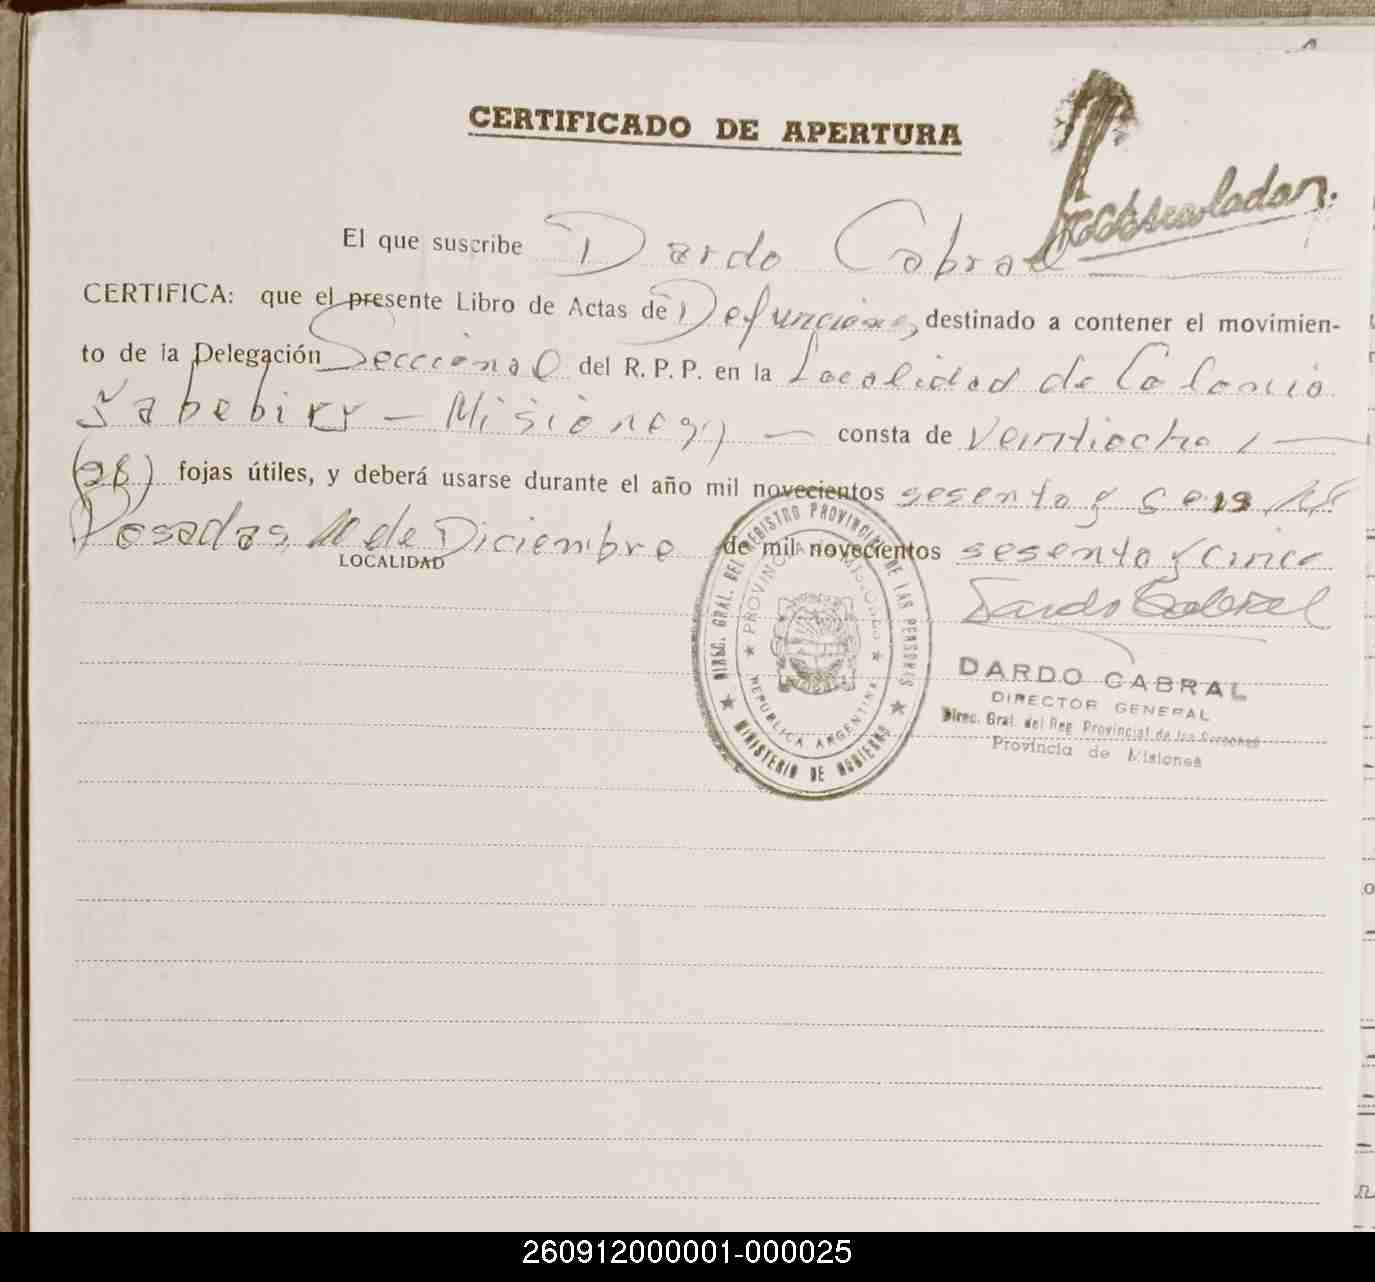 CERTIFICADO DE APERTURA
El que suscribe Dardo Cabral
CERTIFICA: que el presente Libro de Actas de Defunciones, destinado a contener el movimien-
to de la Delegación Seccional del R. P. P. en la Localidad de Colonia
Yabebiry - Misiones - consta de Veintiocho
(28) fojas útiles, y deberá usarse durante el año mil novecientos sesenta y seis
Posadas, de Diciembre de mil novecientos sesenta y cinco
LOCALIDAD
Dardo Cabral
DARDO CABRAL
DIRECTOR GENERAL
Direc. Gral. del Reg. Provincial de las Personas
Provincia de Misiones
DIREC. GRAL. DEL REGISTRO PROVINCIAL DE LAS PERSONAS
PROVINCIA DE MISIONES
REPUBLICA ARGENTINA
MINISTERIO DE GOBIERNO
260912000001-000025